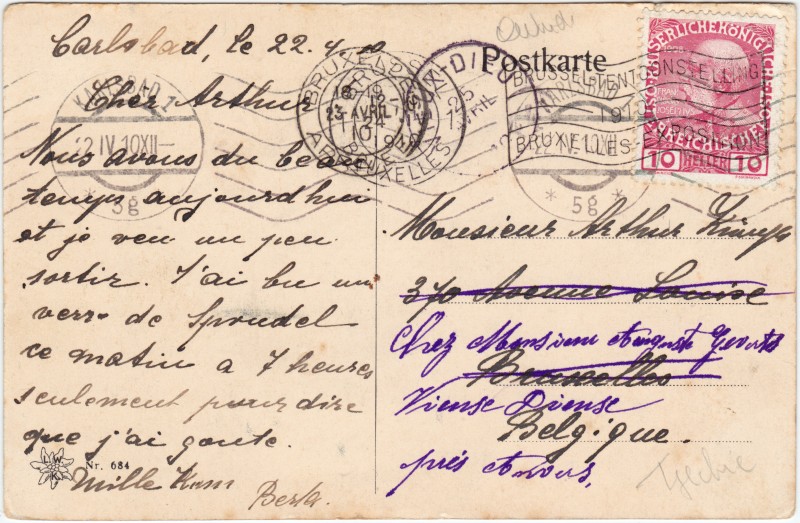 Carlsbad, le 22.4.10
Cher Arthur
Nous avons du beau
temps aujourdhui
et je veu un peu
sortir. J'ai bu un
verre de Sprudel
ce matin a 7 heures
seulement pour dire
que j'ai gouté.
Mille
Berta
Nr. 684
Postkarte
Monsieur Arthur
370 Avenue Louise
Chez Monsieur Auguste Geverts
Bruxelles
Vieuse Dieuse
Belgique.
près Anvers,
KARLSBAD 1
22 IV 10 XII
* 5g *
BRUXELLES
23 AVRIL
1910
BRUXELLES
VIEUX-DIEU
AVRIL
BRUSSEL-TENTOONSTELLING
1910
BRUXELLES-EXPOSITION
* 5g *
KAISERLICHE KÖNIGLICHE
ÖSTERREICHISCHE POST
10 HELLER 10